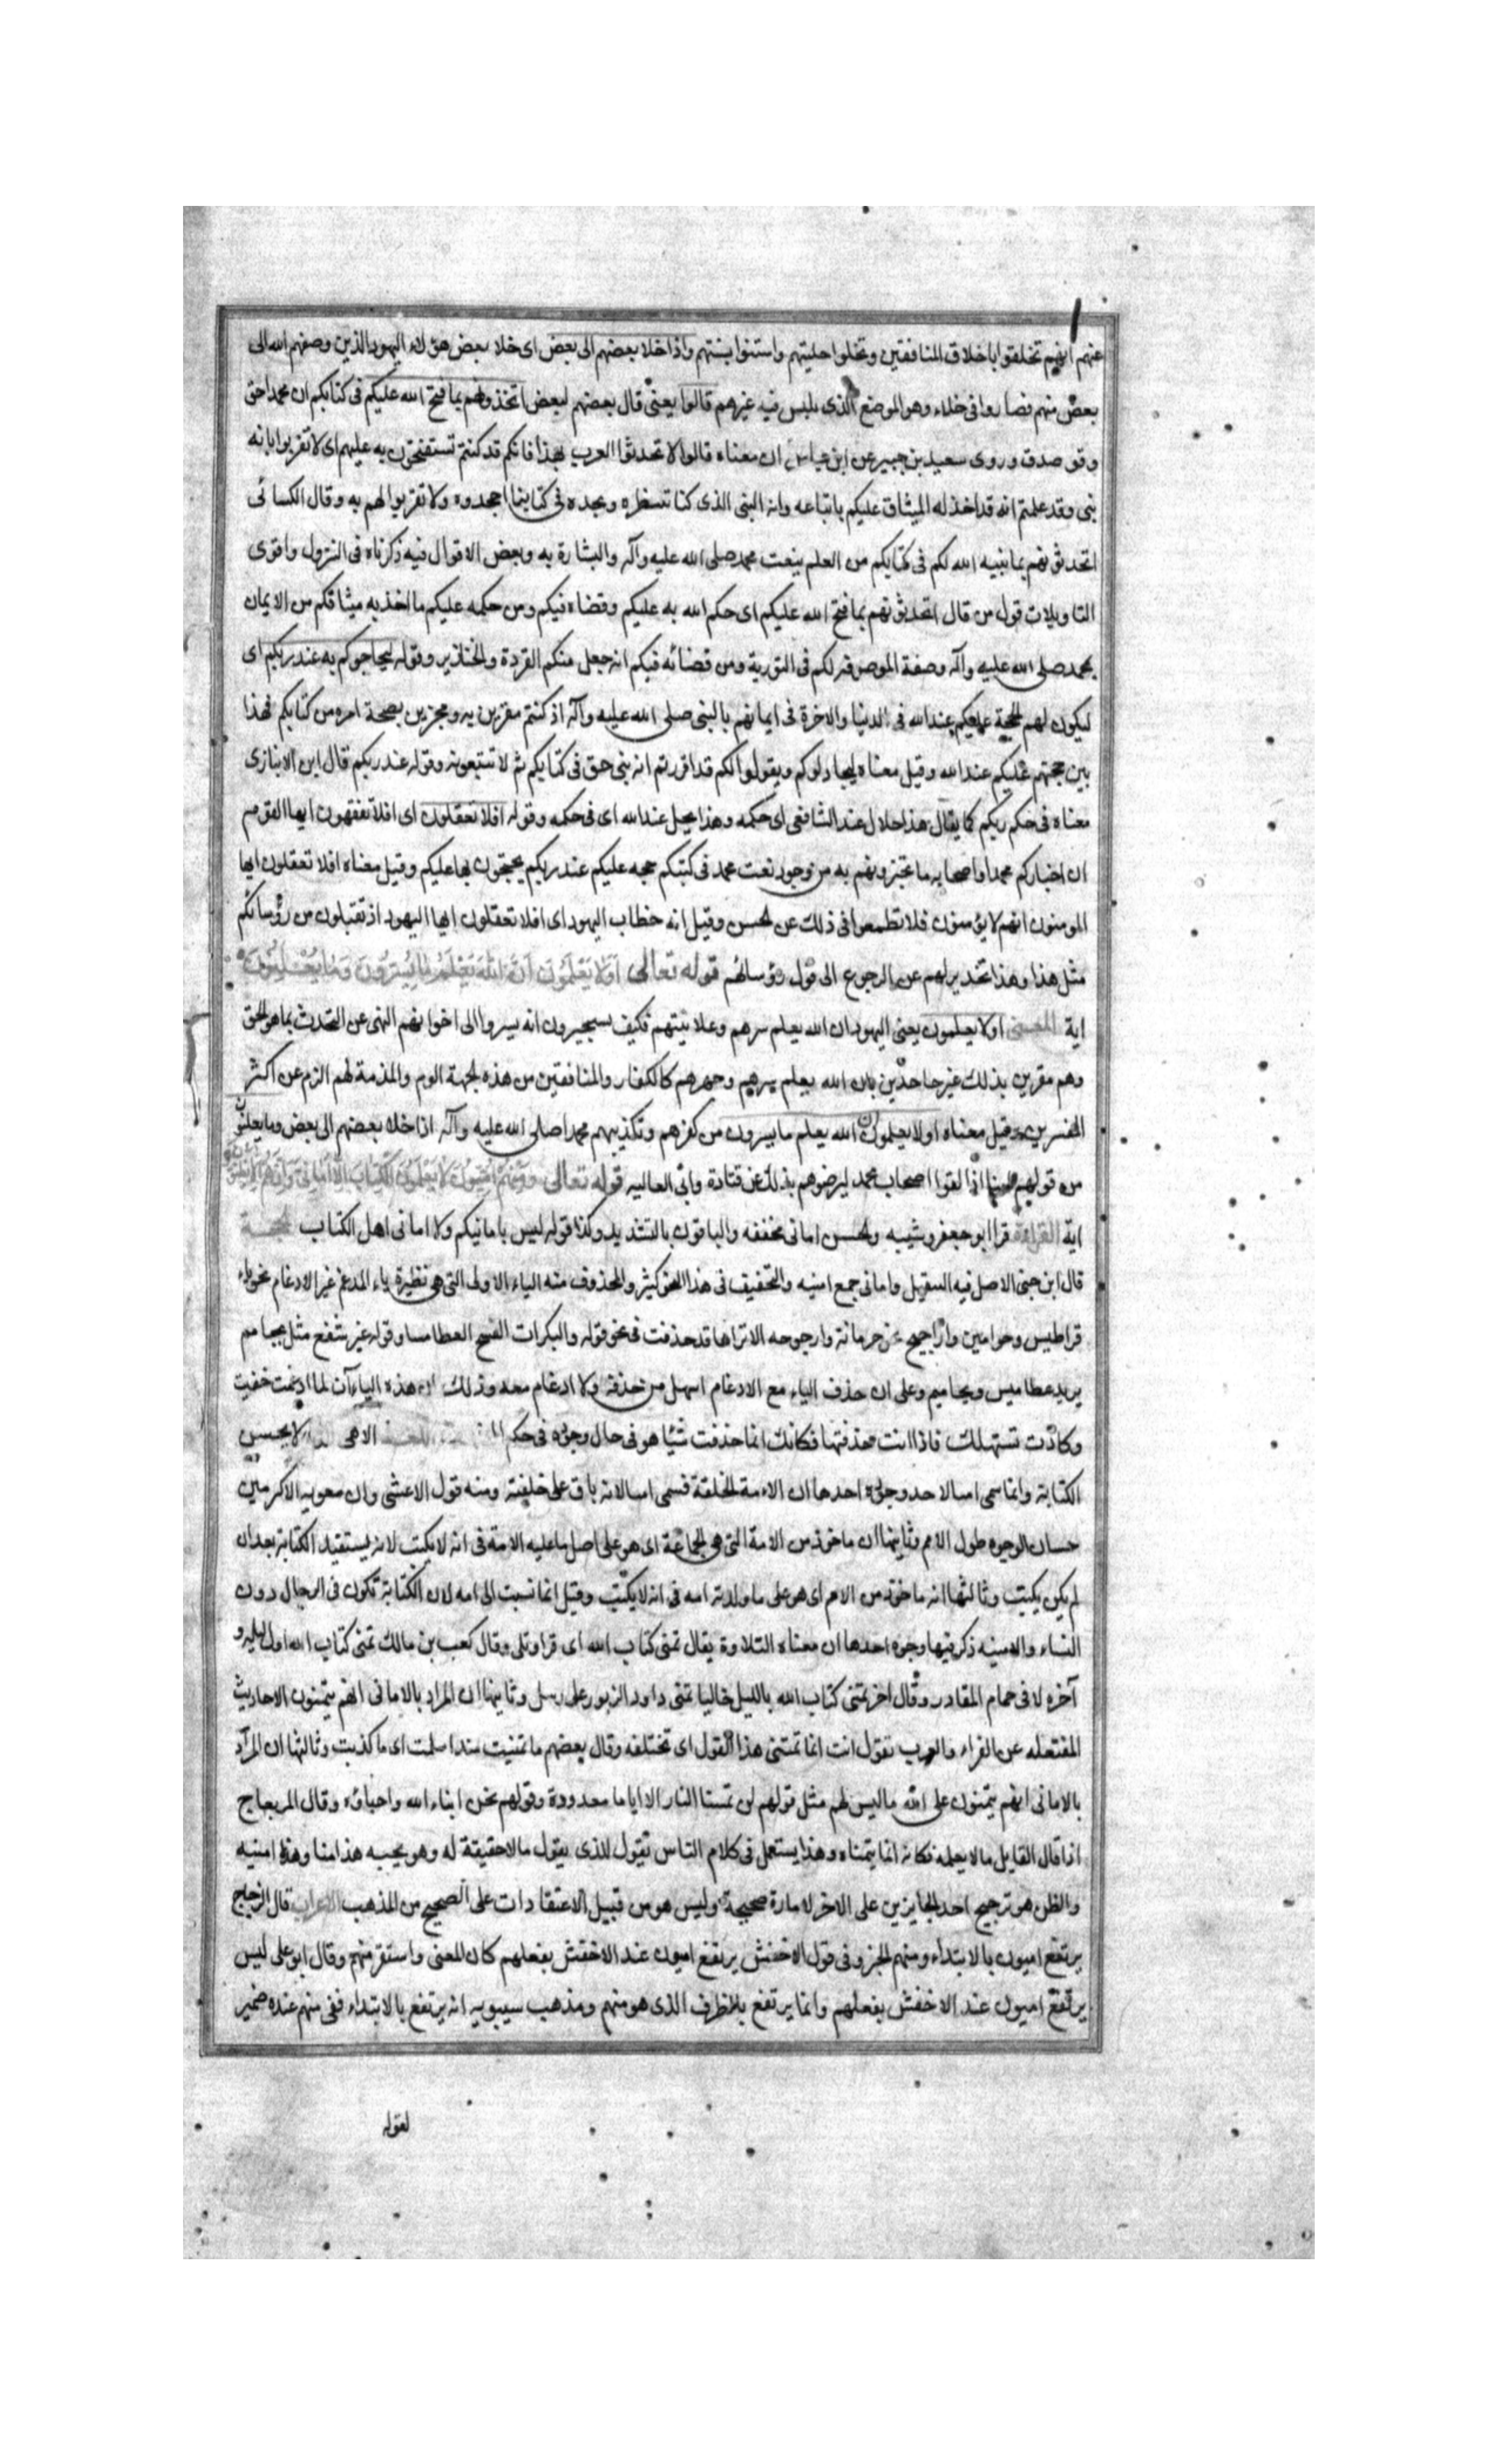 عنهم انهم تخلقوا باخلاق المنافقين وتحلوا حليتهم واستنوا بسنتهم واذا خلا بعضهم الى بعض اى خلا بعض هؤلاء اليهود الذين وصفهم الله الى
بعض منهم فصاروا فى خلاء وهو الموضع الذى ليس فيه غيرهم قالوا يعنى قال بعضهم لبعض اتحدثونهم بما فتح الله عليكم فى كتابكم ان محمدا حق
وقوله صدق وروى سعيد بن جبير عن ابن عباس ان معناه قالوا لا تحدثوا العرب بهذا فانكم قد كنتم تستفتحون به عليهم اى لا تقربوا بانه
نبى وقد علمتم انه قد اخذ له الميثاق عليكم باتباعه وانه النبى الذى كنا ننتظره ونجده فى كتابنا اجحدوه ولا تقربوا لهم به وقال الكسائى
اتحدثونهم بما بينه الله لكم فى كتابكم من العلم ببعث محمد صلى الله عليه وآله والبشارة به وبعض الاقوال فيه ذكرناه فى النزول واقوى
التاويلات قول من قال اتحدثونهم بما فتح الله عليكم اى حكم الله به عليكم وقضاه فيكم ومن حكمه عليكم ما اخذ به ميثاقكم من الايمان
بمحمد صلى الله عليه وآله وصفة الموصوفه لكم فى التورية ومن قضائه فيكم انه جعل منكم القردة والخنازير وقوله ليحاجوكم به عند ربكم اى
ليكون لهم الحجة عليكم عند الله فى الدنيا والاخرة فى ايمانهم بالنبى صلى الله عليه وآله اذ كنتم مقرين به ومخبرين بصحة امره من كتابكم فهذا
بين حجتهم عليكم عند الله وقيل معناه ليجادلوكم ويقولوا لكم قد اقررتم انه نبى حق فى كتابكم ثم لا تتبعونه وقوله عند ربكم قال ابن الانبارى
معناه فى حكم ربكم كما يقال هذا حلال عند الشافعى اى حكمه وهذا يحل عند الله اى فى حكمه وقوله افلا تعقلون اى افلا تفقهون ايها القوم
ان اخباركم محمدا واصحابه ما تخبرونهم به من وجود نعت محمد فى كتبكم حجه عليكم عند ربكم يحتجون بها عليكم وقيل معناه افلا تعقلون ايها
المومنون انهم لا يؤمنون فلا تطمعوا فى ذلك عن الحسن وقيل انه خطاب اليهود اى افلا تعقلون ايها اليهود اذ تقبلون من رؤسائكم
مثل هذا وهذا تحذير لهم عن الرجوع الى قول رؤسائهم قوله تعالى اولا يعلمون ان الله يعلم ما يسرون وما يعلنون
اية المعنى اولا يعلمون يعنى اليهود ان الله يعلم سرهم وعلانيتهم فكيف يستجيزون انه يسروا الى اخوانهم النهى عن التحدث بما هو الحق
وهم مقرين بذلك غير جاحدين بان الله يعلم سرهم وجهرهم كالكفار والمنافقين من هذه الجهة اللوم والمذمة لهم الزم عن اكثر
المفسرين وقيل معناه اولا يعلمون ان الله يعلم ما يسرون من كفرهم وتكذيبهم محمدا صلى الله عليه وآله اذا خلا بعضهم الى بعض وما يعلنون
من قولهم امنا اذا لقوا اصحاب محمد ليرضوهم بذلك عن قتادة وابى العاليه قوله تعالى ومنهم اميون لا يعلمون الكتاب الا امانى وان هم الا يظنون
اية القراءة قرا ابو جعفر وشيبه والحسن امانى مخففه والباقون بالتشديد وكذا قوله ليس بامانيكم ولا امانى اهل الكتاب الحجة
قال ابن جنى الاصل فيه التثقيل وامانى جمع امنيه والتخفيف فى هذا النحو كثير والمحذوف منه الياء الاولى التى هى نظيرة ياء المد مع غير الادغام نحو ياء
قراطيس وحوامين واراجيح جمع حرمانة وارجوحه الا تراها قد حذفت فى نحو قوله والبكرات الفسج العطامسا وقوله غير سفع مثل يحامم
يريد عطاميس ويحاميم وعلى ان حذف الياء مع الادغام اسهل من حذفه ولا ادغام معه وذلك ان هذه الياءآن لما ادغمت خفيت
وكادت تستهلك فاذا انت حذفتها فكانك انما حذفت شيئا هو فى حال وجوده فى حكم الامى الذى لا يحسن
الكتابة وانما سمى اميا لاحد وجوه احدها ان الامة الخلقة فسمى اميا لانه باق على خلقته ومنه قول الاعشى وان معوية الاكرمين
حسان الوجوه طول الامم وثانيها ان ماخوذ من الامة التى هى الجماعة اى هو على اصل ما عليه الامة فى انه لا يكتب لانه يستفيد الكتابة بعد ان
لم يكن يكتب وثالثها انه ماخوذ من الام اى هو على ما ولدته امه فى انه لا يكتب وقيل انما نسبت الى امه لان الكتابة تكون فى الرجال دون
النساء والامنيه ذكر فيها وجوه احدها ان معناه التلاوة يقال تمنى كتاب الله اى قرا وتلى وقال كعب بن مالك تمنى كتاب الله اول ليله و
آخره لاقى حمام المقادر وقال اخر تمنى كتاب الله بالليل خاليا تمنى داود الزبور على رسل وثانيها ان المراد بالامانى انهم يتمنون الاحاديث
المفتعله عن الفراء والعرب تقول انت انما تمتنى هذا القول اى تختلقه وقال بعضهم ما تمنيت منذ اسلمت اى ما كذبت وثالثها ان المراد
بالامانى انهم يتمنون على الله ما ليس لهم مثل قولهم لن تمسنا النار الا اياما معدودة وقولهم نحن ابناء الله واحباؤه وقال الزجاج
اذا قال القايل ما لا يعلمه فكانه انما يتمناه وهذا يستعمل فى كلام الناس تقول للذى يقول ما لا حقيقة له وهو يحبه هذا منا وهذا امنيه
والظن هو ترجيح احد الجايزين على الاخر لامارة صحيحة وليس هو من قبيل الاعتقادات على الصحيح من المذهب الاعراب قال الزجاج
يرتفع اميون بالابتداء ومنهم الخبر وفى قول الاخفش يرتفع اميون عند الاخفش بفعلهم كان المعنى واستقر منهم وقال ابو على ليس
يرتفع اميون عند الاخفش بفعلهم وانما يرتفع بالظرف الذى هو منهم ومذهب سيبويه انه يرتفع بالابتداء ففى منهم عنده ضمير
لقوله